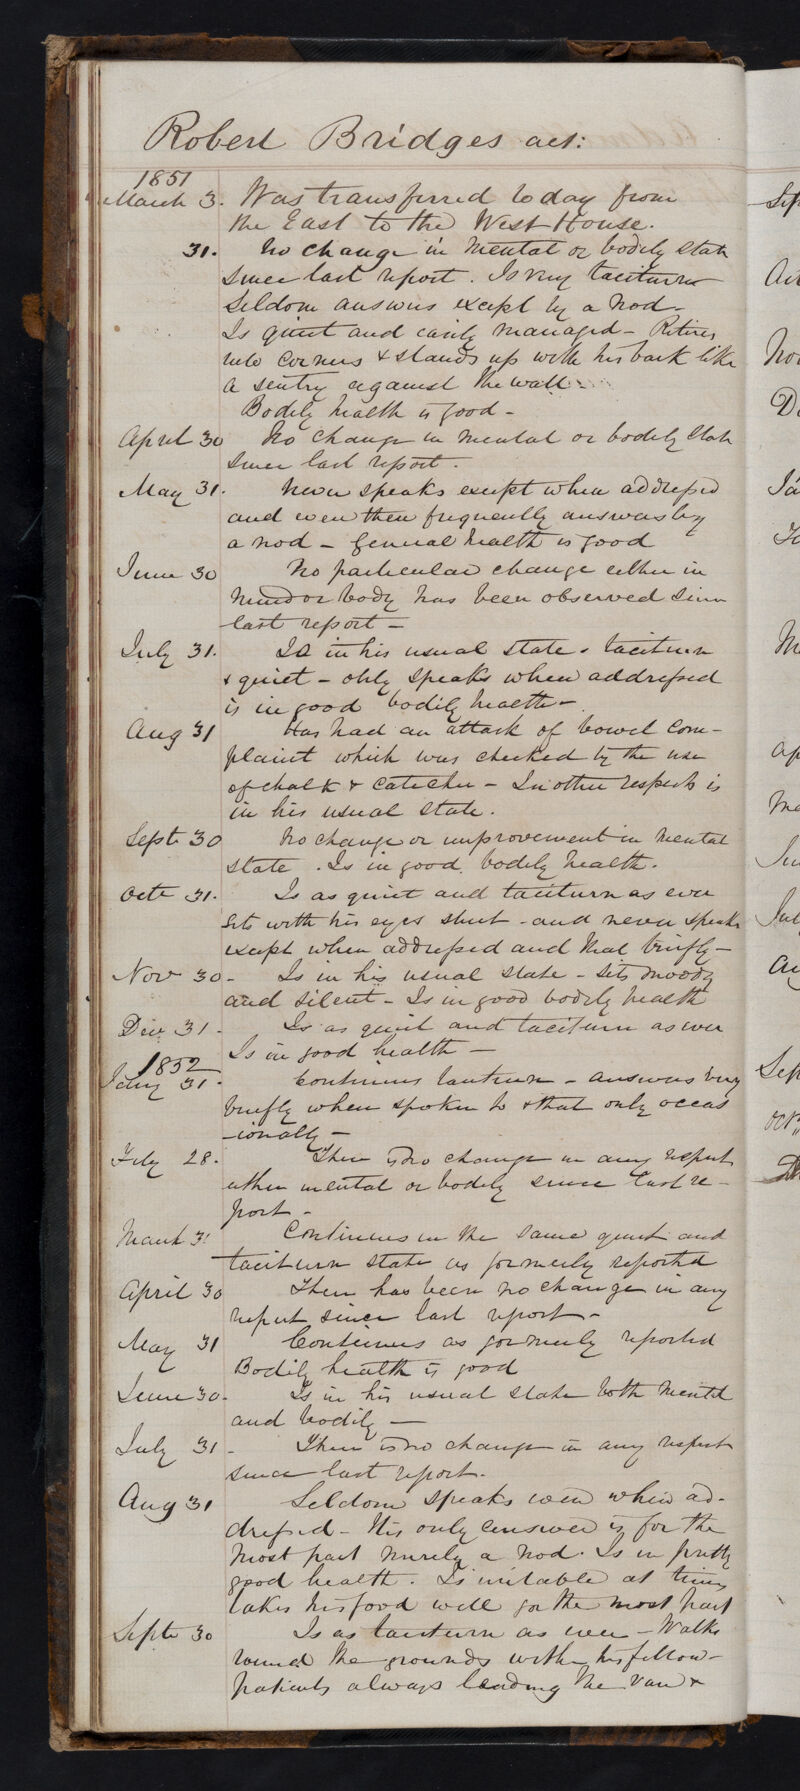 Robert Bridges act:
1851
March 3. Was transferred today from
the East to the West House.
31. No change in mental or bodily state
since last report. Is very taciturn
Seldom answers except by a nod.
Is quiet and easily managed – Retires
into corners & stands up with his back like
a sentry against the wall –
Bodily health is good –
April 30 No change in mental or bodily state
since last report.
May 31. Never speaks except when addressed
and even then frequently answers by
a nod – General health is good
June 30 No particular change either in
mind or body has been observed since
last report –
July 31. Is in his usual state – taciturn
& quiet – only speaks when addressed
is in good bodily health –
Aug 31 Has had an attack of bowel com–
plaint which was checked by the use
of chalk & catechu – In other respects is
in his usual state.
Septr 30 No change or improvement in mental
state. Is in good bodily health.
Octr 31. Is as quiet and taciturn as ever
sits with his eyes shut – and never speaks
except when addressed and that briefly –
Nov 30 – Is in his usual state – sits moody
and silent – Is in good bodily health
Dec 31 – Is as quiet and taciturn as ever
Is in good health –
1852
Jany 31. Continues taciturn – answers very
briefly when spoken to & that only occas
–ionally –
Feby 28. There is no change in any respect
either mental or bodily since last re–
port –
March 31 Continues in the same quiet and
taciturn state as formerly reported
April 30 There has been no change in any
respect since last report –
May 31 Continues as formerly reported
Bodily health is good
June 30 – Is in his usual state both mental
and bodily –
July 31 – There is no change in any respect
since last report.
Aug 31 Seldom speaks even when ad–
dressed – His only answer is for the
most part merely a nod. Is in pretty
good health. Is irritable at times
takes his food well for the most part
Septr 30 Is as taciturn as ever – Walks
round the grounds with his fellow–
patients always leading the van &